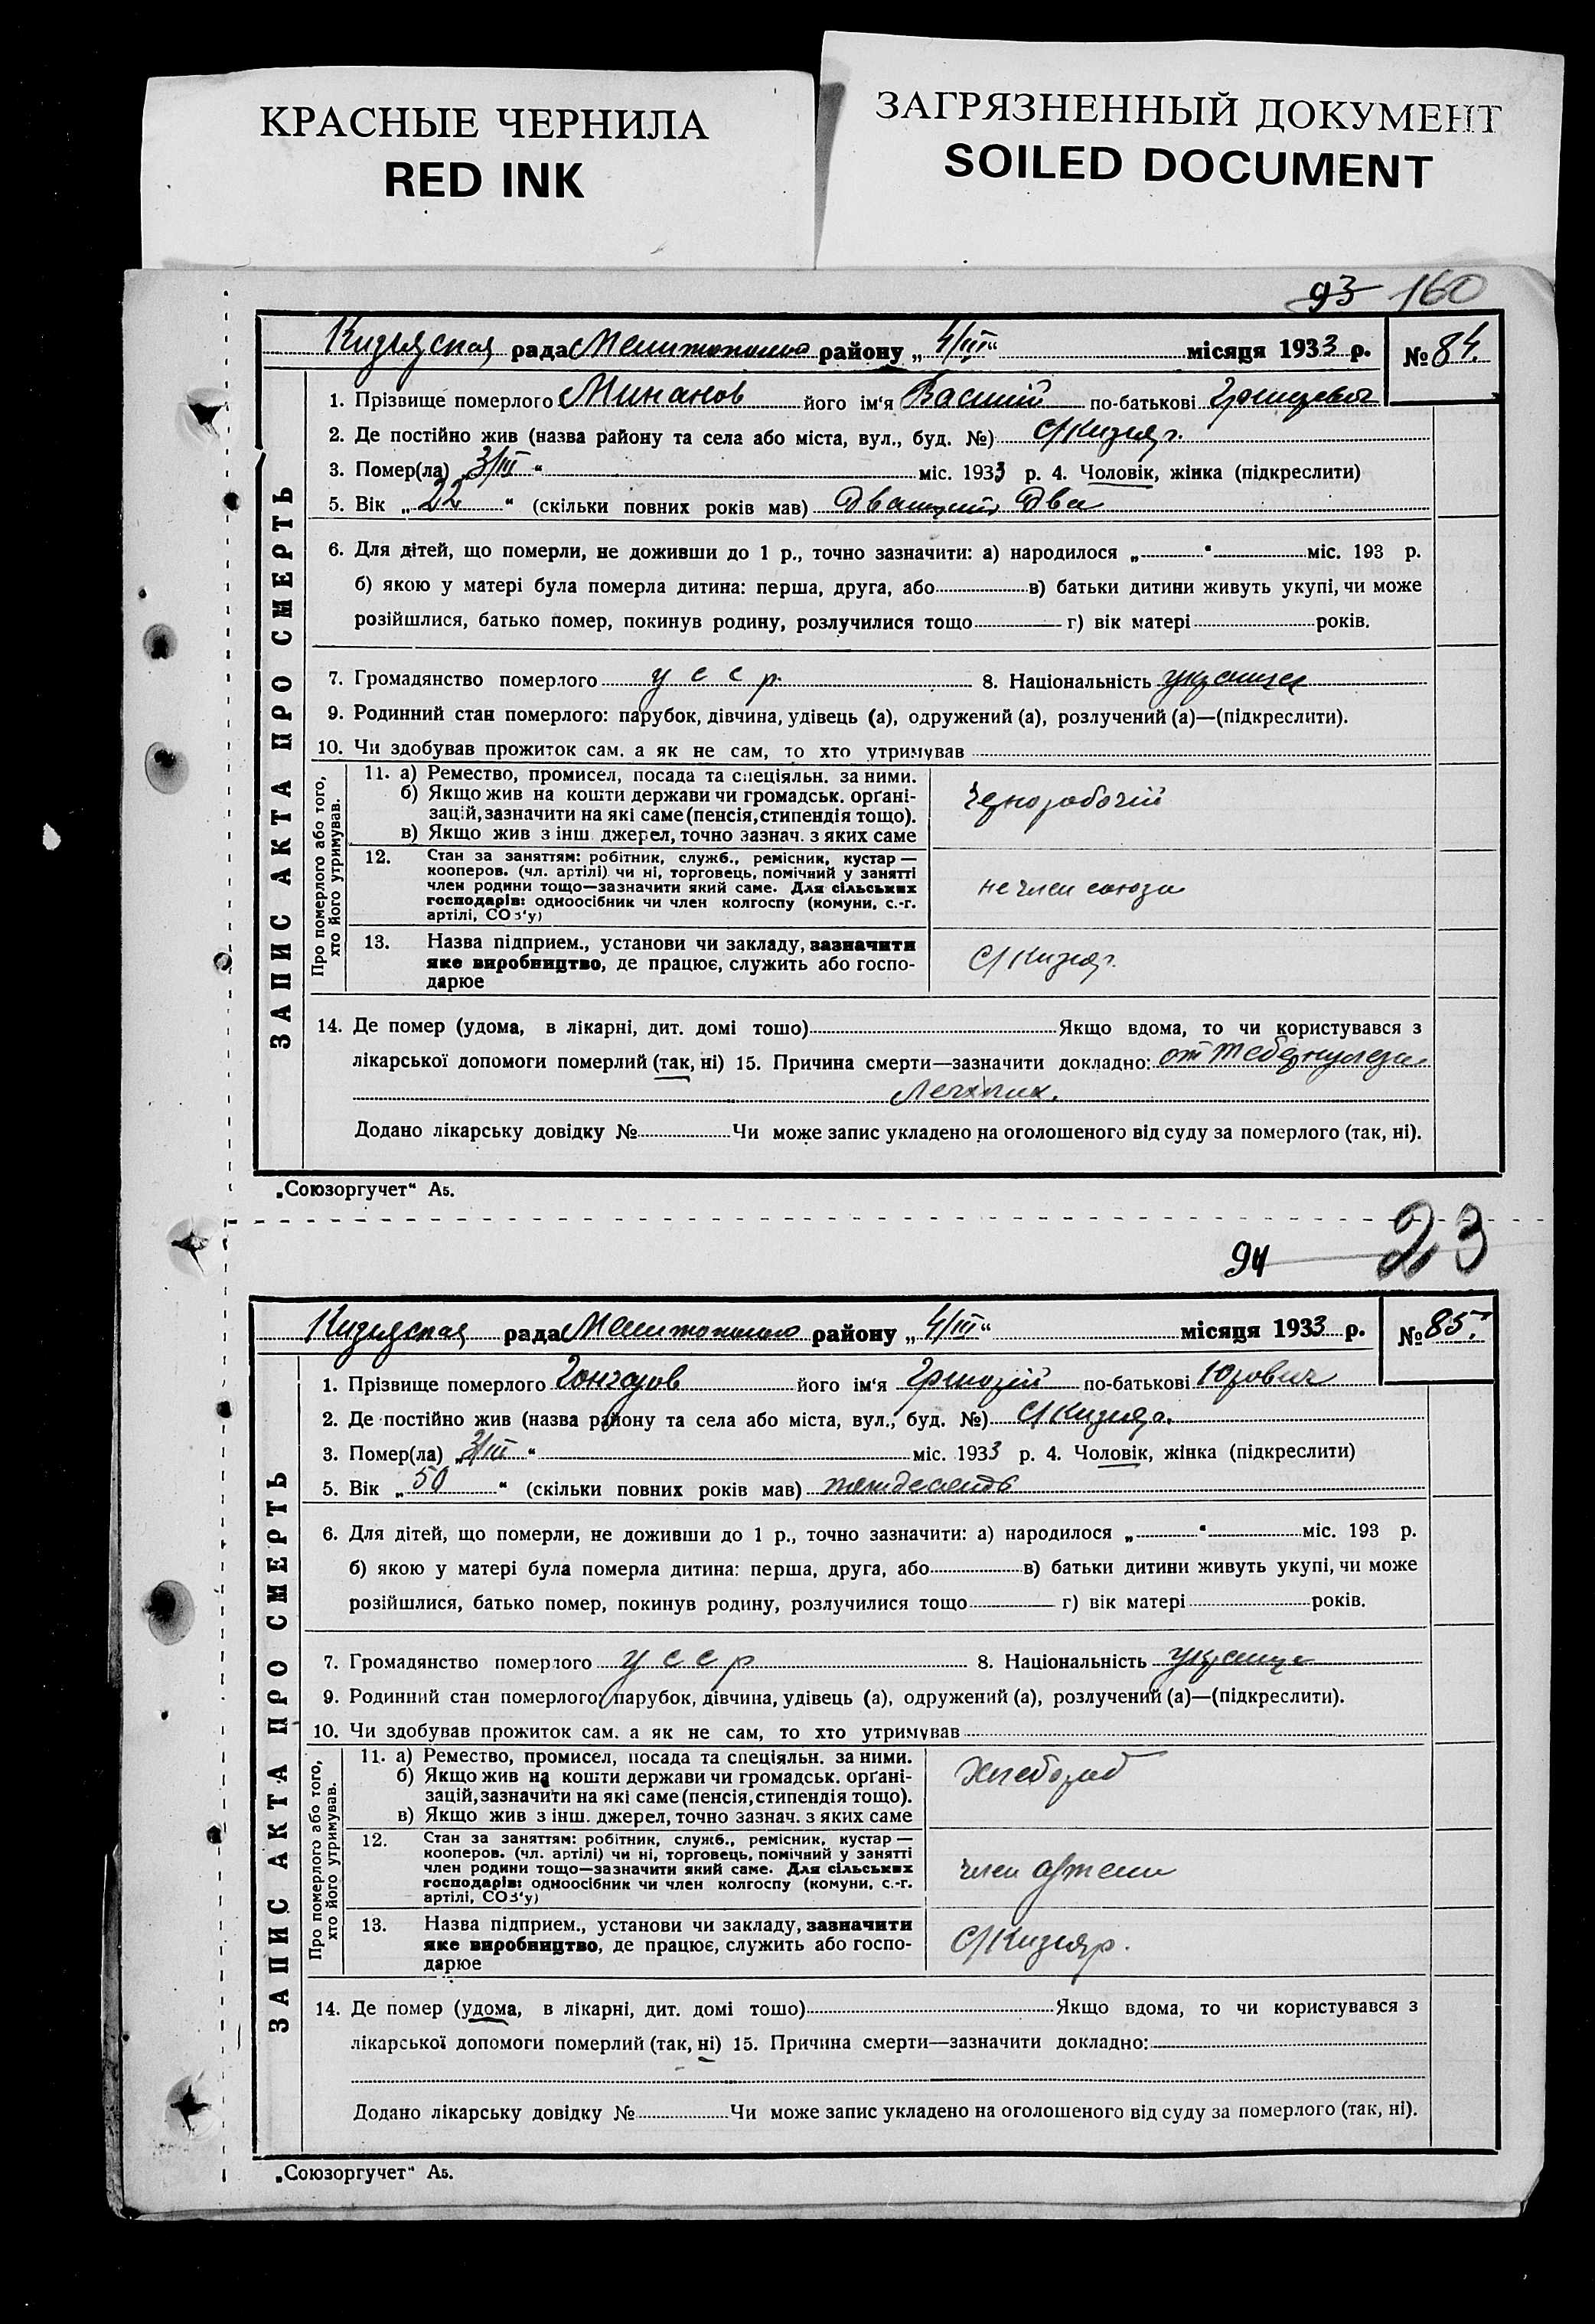 КРАСНЫЕ ЧЕРНИЛА
RED INK
ЗАГРЯЗНЕННЫЙ ДОКУМЕНТ
SOILED DOCUMENT
93 160
рада района „4/III“ місяця 1933 р. № 84.
ЗАПИС АКТА ПРО СМЕРТЬ
1. Прізвище померлого Минанов його ім'я Василий по-батькові
2. Де постійно жив (назва району та села або міста, вул., буд. №) С/Кизияр.
3. Помер(ла) „3/III“ міс. 1933 р. 4. Чоловік, жінка (підкреслити)
5. Вік „22“ (скільки повних років мав) двадцать два
6. Для дітей, що померли, не доживши до 1 р., точно зазначити: а) народилося „ “ міс. 193 р.
б) якою у матері була померла дитина: перша, друга, або в) батьки дитини живуть укупі, чи може
розійшлися, батько помер, покинув родину, розлучилися тощо г) вік матері років.
7. Громадянство померлого у с с р. 8. Національність украинец
9. Родинний стан померлого: парубок, дівчина, удівець (а), одружений (а), розлучений (а)—(підкреслити).
10. Чи здобував прожиток сам. а як не сам, то хто утримував
Про померлого або того, хто його утримував.
11. а) Ремество, промисел, посада та спеціяльн. за ними.
б) Якщо жив на кошти держави чи громадськ. органі-
зацій, зазначити на які саме (пенсія, стипендія тощо).
в) Якщо жив з інш. джерел, точно зазнач. з яких саме
Чернорабочий
12. Стан за заняттям: робітник, служб., ремісник, кустар —
кооперов. (чл. артілі) чи ні, торговець, помічний у занятті
член родини тощо—зазначити який саме. Для сільських
господарів: одноосібник чи член колгоспу (комуни, с.-г.
артілі, СОЗ'у)
не член союза
13. Назва підприєм., установи чи закладу, зазначити
яке виробництво, де працює, служить або госпо-
дарює
С/Кизияр.
14. Де помер (удома, в лікарні, дит. домі тошо) Якщо вдома, то чи користувався з
лікарської допомоги померлий (так, ні) 15. Причина смерти—зазначити докладно: от
Додано лікарську довідку № Чи може запис укладено на оголошеного від суду за померлого (так, ні).
„Союзоргучет“ А5.
94 23
рада района „4/III“ місяця 1933 р. № 85.
ЗАПИС АКТА ПРО СМЕРТЬ
1. Прізвище померлого Гончаров його ім'я Григорий по-батькові Юрович
2. Де постійно жив (назва району та села або міста, вул., буд. №) С/Кизияр.
3. Помер(ла) „3/III“ міс. 1933 р. 4. Чоловік, жінка (підкреслити)
5. Вік „50“ (скільки повних років мав)
6. Для дітей, що померли, не доживши до 1 р., точно зазначити: а) народилося „ “ міс. 193 р.
б) якою у матері була померла дитина: перша, друга, або в) батьки дитини живуть укупі, чи може
розійшлися, батько помер, покинув родину, розлучилися тощо г) вік матері років.
7. Громадянство померлого у с с р 8. Національність украинец
9. Родинний стан померлого: парубок, дівчина, удівець (а), одружений (а), розлучений (а)—(підкреслити).
10. Чи здобував прожиток сам. а як не сам, то хто утримував
Про померлого або того, хто його утримував.
11. а) Ремество, промисел, посада та спеціяльн. за ними.
б) Якщо жив на кошти держави чи громадськ. органі-
зацій, зазначити на які саме (пенсія, стипендія тощо).
в) Якщо жив з інш. джерел, точно зазнач. з яких саме
Хлебороб
12. Стан за заняттям: робітник, служб., ремісник, кустар —
кооперов. (чл. артілі) чи ні, торговець, помічний у занятті
член родини тощо—зазначити який саме. Для сільських
господарів: одноосібник чи член колгоспу (комуни, с.-г.
артілі, СОЗ'у)
член артели
13. Назва підприєм., установи чи закладу, зазначити
яке виробництво, де працює, служить або госпо-
дарює
С/Кизияр.
14. Де помер (удома, в лікарні, дит. домі тошо) Якщо вдома, то чи користувався з
лікарської допомоги померлий (так, ні) 15. Причина смерти—зазначити докладно:
Додано лікарську довідку № Чи може запис укладено на оголошеного від суду за померлого (так, ні).
„Союзоргучет“ А5.